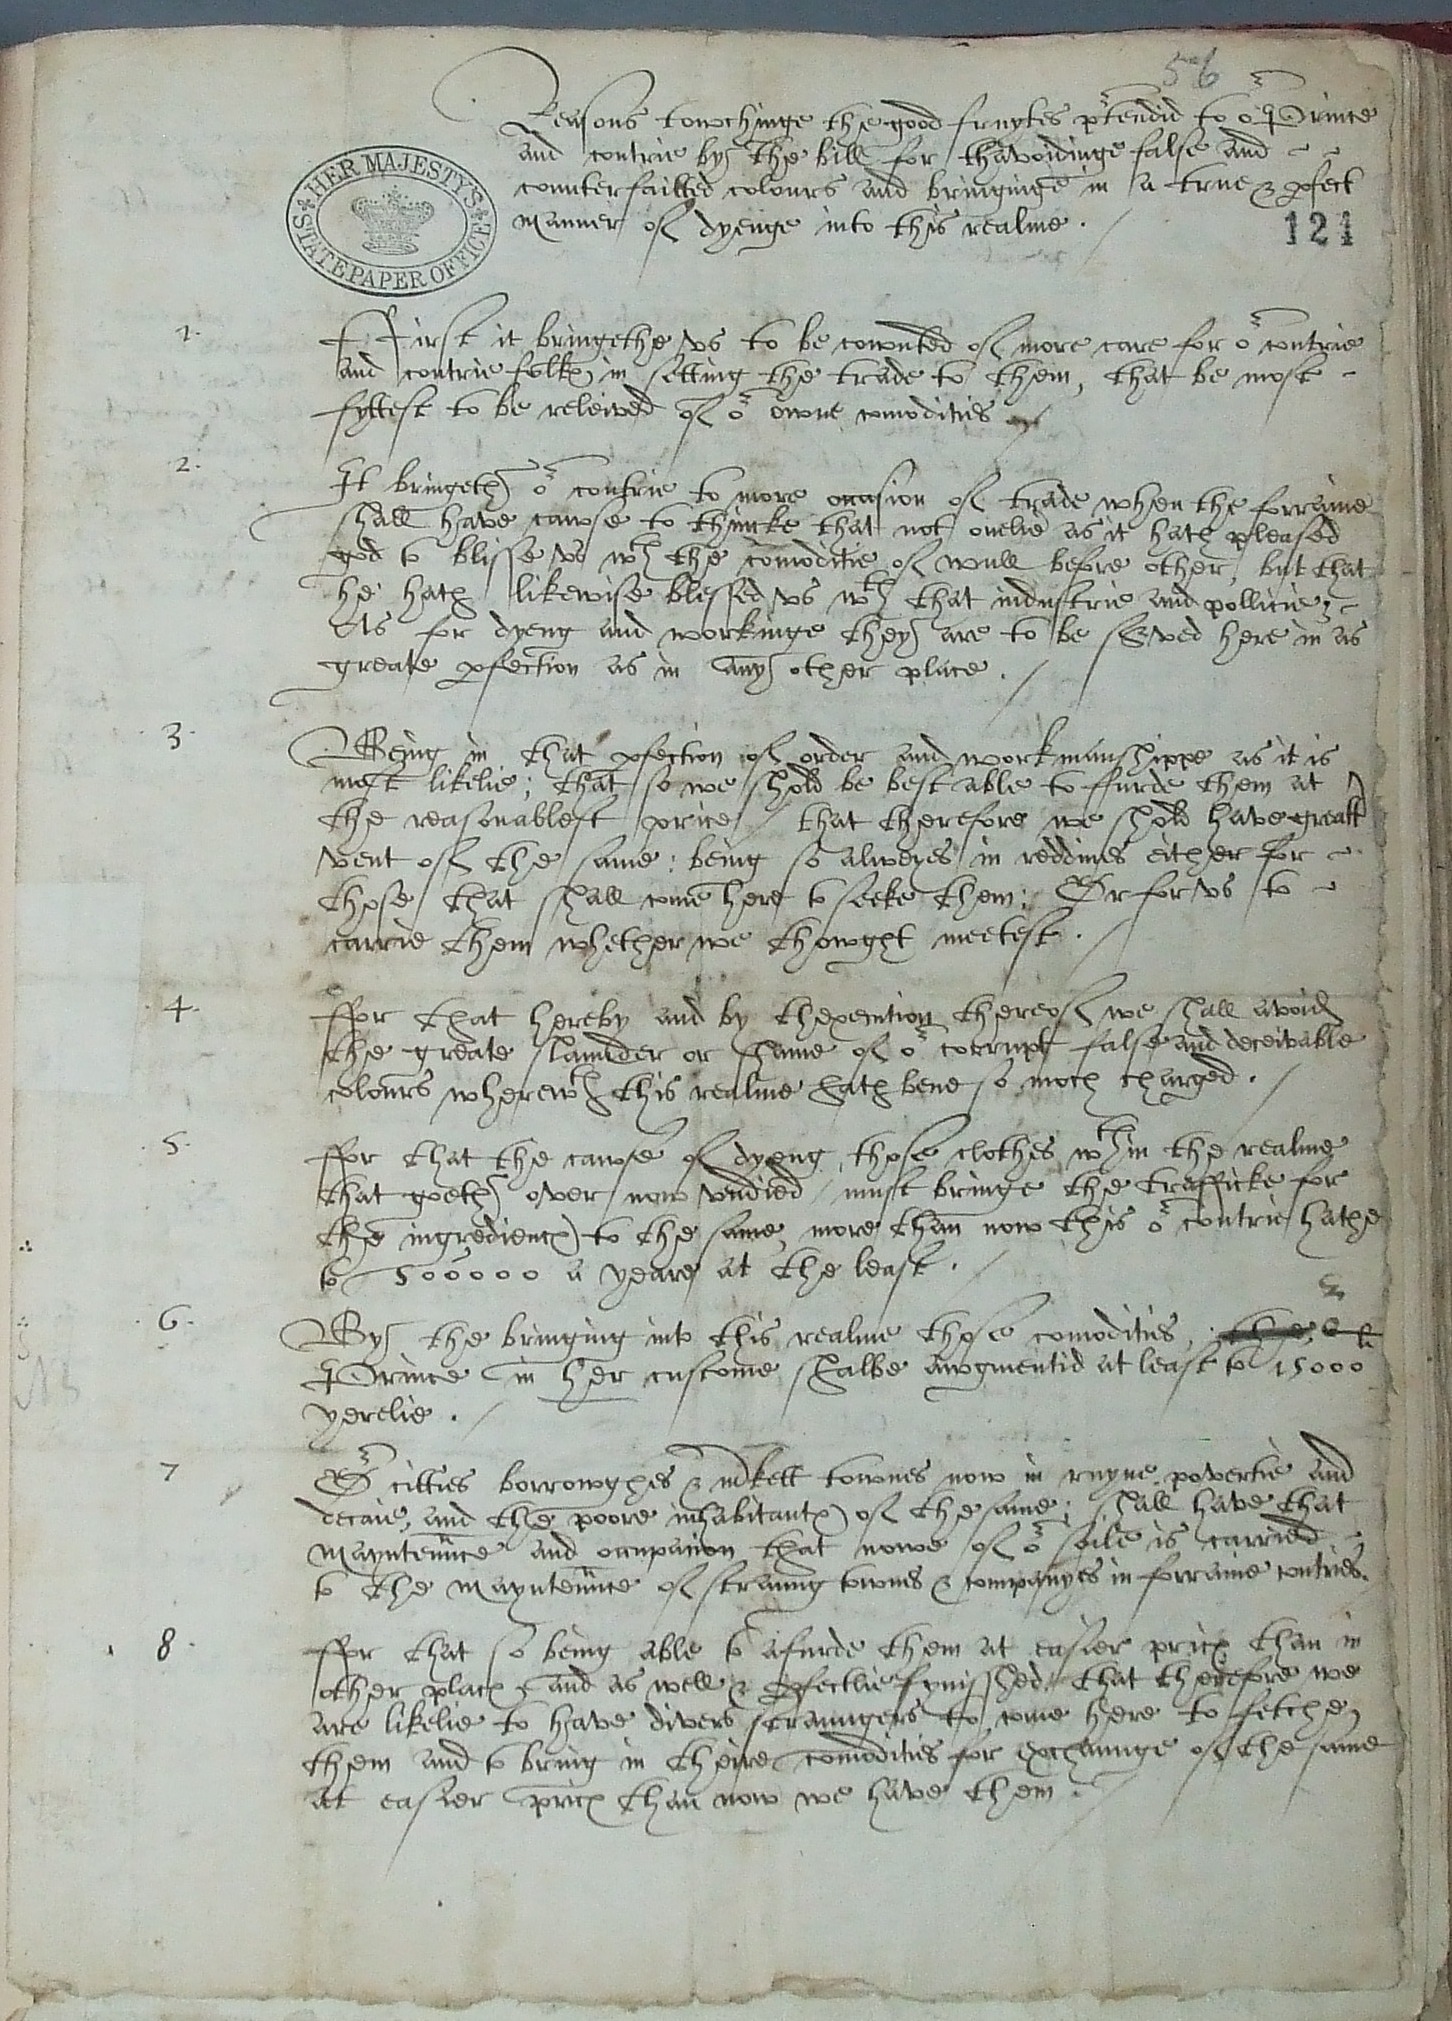 56
Reasons towchinge the good fruytes p̃tendid to oͬ Prince
and contrie by the bill for thavoidinge false and
counterfaitted colours and bringinge in a true & ꝑfect
manner of dyenge into this realme.
HER MAJESTY'S
STATE PAPER OFFICE
121
1. First it bringethe vs to be cownted of more care for oͬ contrie
and contrie folkꝭ in setting the trade to them, that be most
fyttest to be releived of oͬ owne comodities
2. It bringeth oͬ contrie to more occasion of trade when the forraine
shall have cawse to thincke that not onelie as it hath pleased
god to blisse vs wᵗʰ the comoditie of wull before other, but that
he hath likewise blessed vs wᵗʰ that industrie and pollicie,
As for dyeng and workinge they are to be served here in as
greate ꝑfection as in any other place.
3. Being in that ꝑfection of order and workmanshippe as it is
most likelie; that so we shold be best able to ffurde them at
the reasonablest price that therefore we shold have great
vent of the same: being so alweyes in reddines either for
those that shall come here to seeke them: Or for vs to
carrie them whether we thowght meetest.
4. ffor that hereby and by thexecution thereof we shall avoid
the greate slaunder or shame of oͬ corrupt false and deceivable
colours wherewᵗʰ this realme hath bene so moch charged.
5. ffor that the cawse of dyeng those clothes wᵗʰin the realme
that goeth over now vndied must bringe the trafficke for
the ingredientꝭ to the same, more than now this oͬ contrie hathe
to 500000 a yeare at the least.
6. By the bringing into this realme those comodities, the
Prince in her custome shalbe awgmentid at least to 15000ˡⁱ
yerelie.
7 Oͬ citties borrowghes & mͬkett townes now in ruyne povertie and
decaie, and the poore inhabitantꝭ of the same; shall have that
mayntenn̄ce and occupacion that nowe of oͬ soile is carried
to the mayntenn̄ce of straung townes & companyes in forraine contries.
8. ffor that so being able to afurde them at easier pricꝭ than in
other placꝭ and as well & ꝑfectlie fynisshed: that therefore we
are likelie to have divers straungers to come here to fetche
them and to bring in theire comodities for exchaunge of the same
at easier pricꝭ than now we have them.